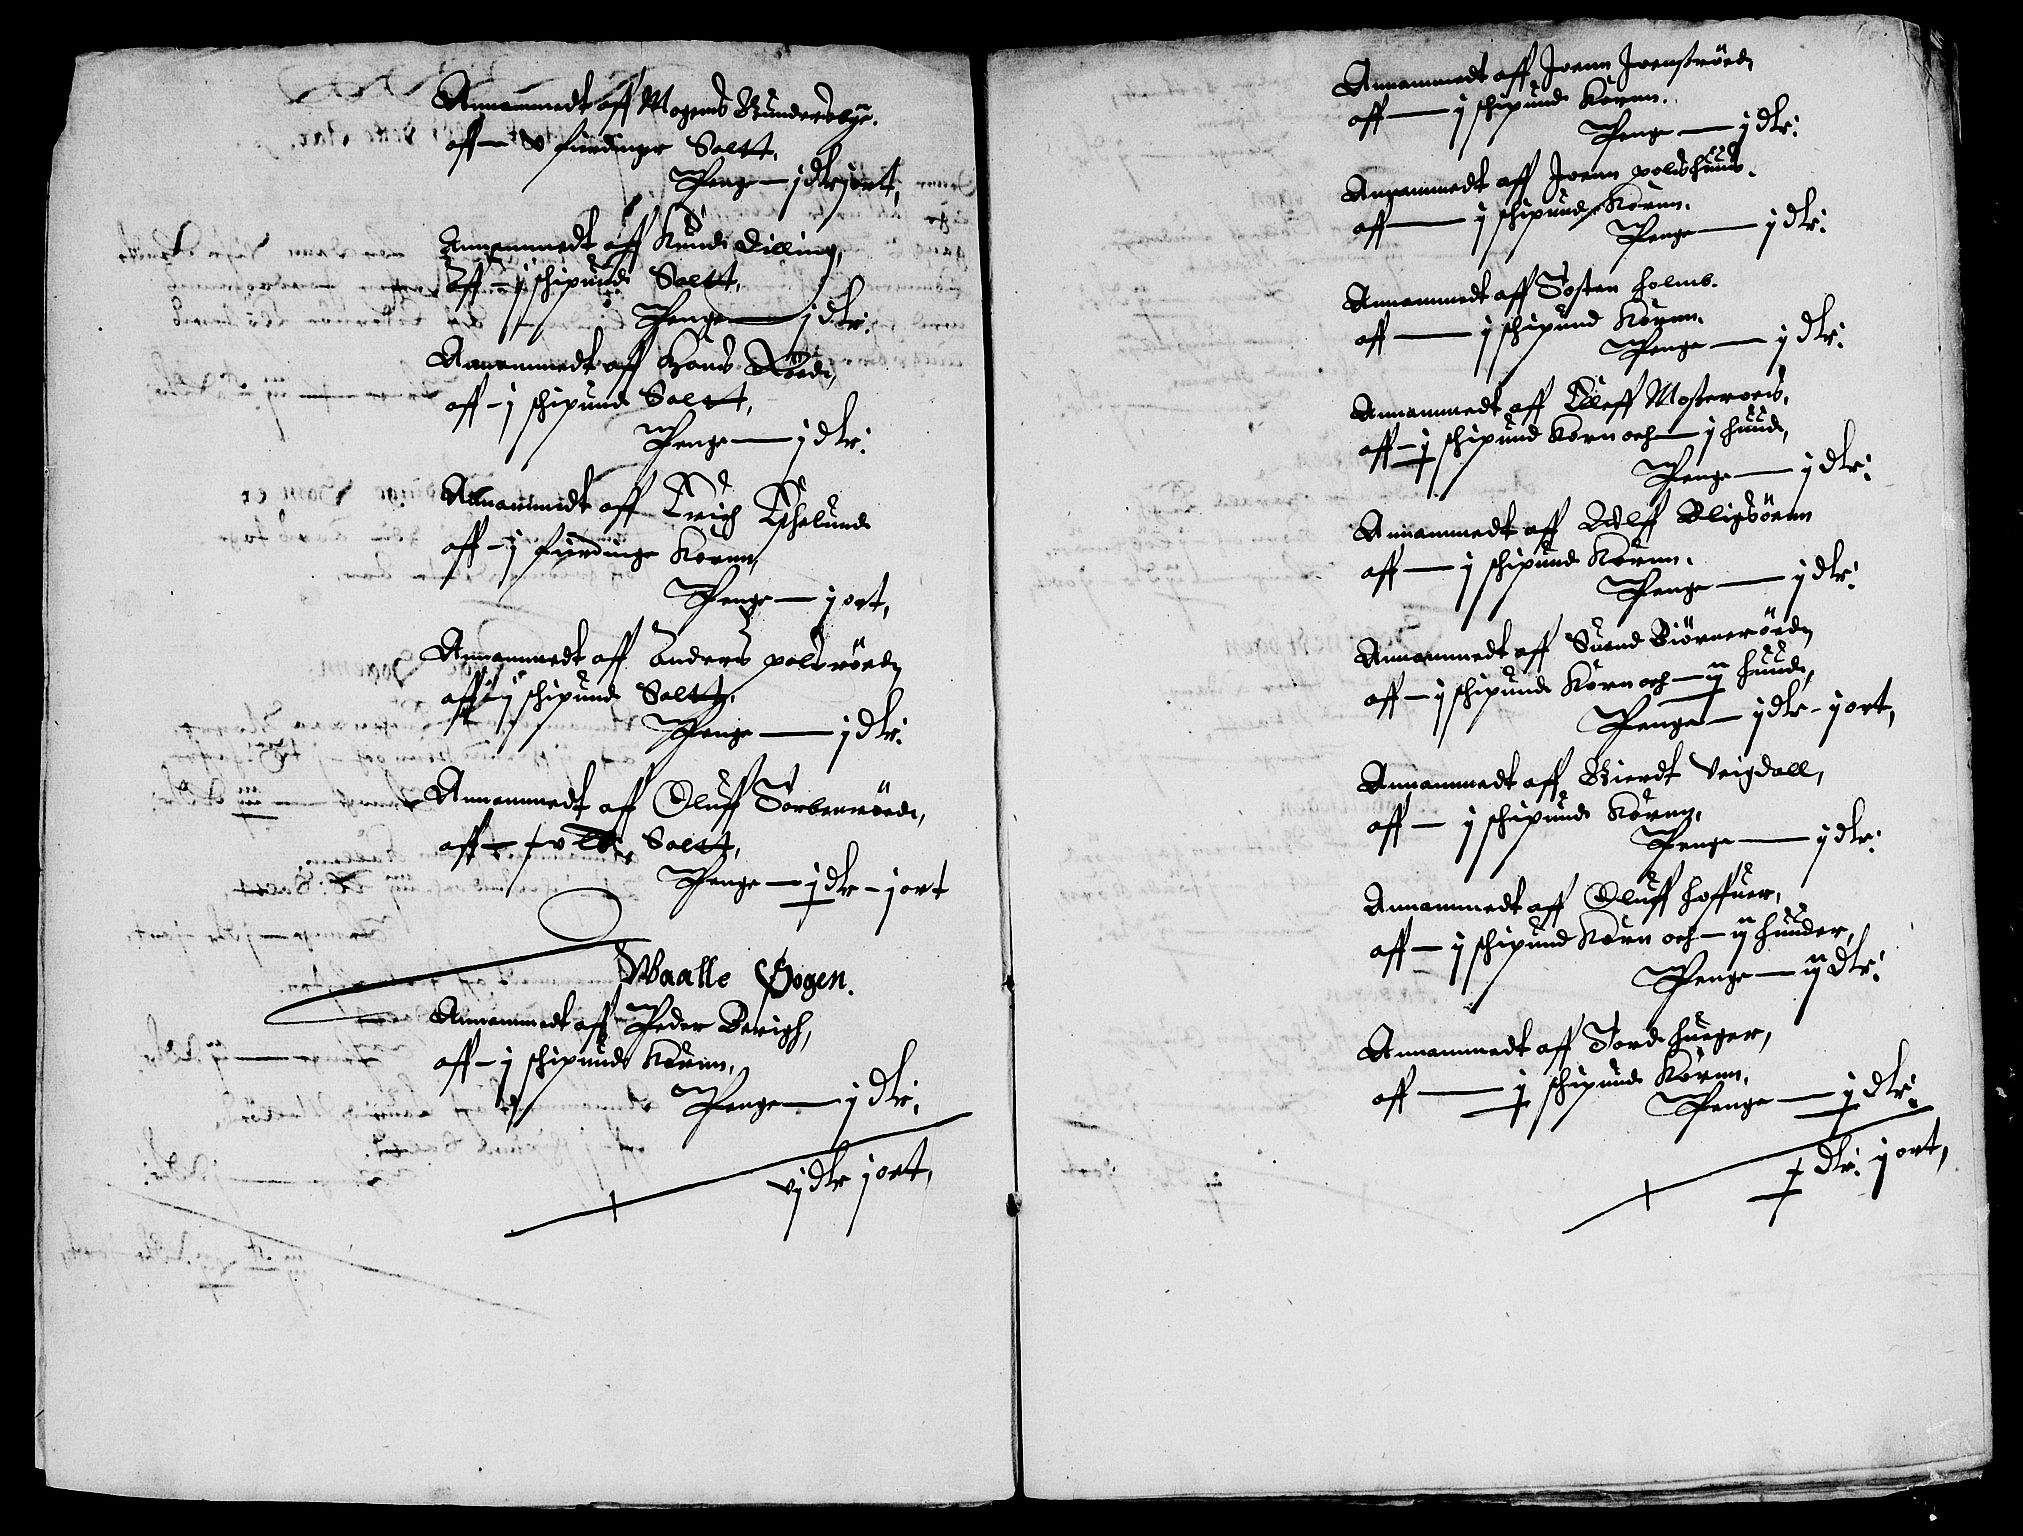 Annammedt aff Mogens Gundersbye.
aff — v fierdinger Saltt,
Penge — j dlr j ort,
Annammedt aff Knud Dilling,
aff — j schipund Saltt,
Penge — j dlr:
Annammedt aff Hans Röed,
aff — j schipund Saltt,
Penge — j dlr:
Annammedt aff Erich Eschelund
aff — j fierdinge Kornn,
Penge — j ort,
Annammedt aff Anders polsröed,
aff — j schipund Saltt,
Penge — j dlr:
Annammedt aff Oluff Torbenröed,
aff — Saltt,
Penge — j dlr — j ort
Waalle Sogen.
Annammedt aff Peder Berigh,
aff — j schipund Kornn,
Penge — j dlr:
vj dlr j ort,
Annammedt aff Joenn Joensröed,
aff — j schipund Kornn.
Penge — j dlr:
Annammedt aff Joenn polshuus.
aff — j schipund Kornn.
Penge — j dlr:
Annammedt aff Tosten holmb.
aff — j schipund Kornn.
Penge — j dlr:
Annammedt aff Elleff Mosteroeds,
aff — j schipund Korn och — j huud,
Penge — j dlr:
Annammedt aff Olff Bligsöenn
aff — j schipund Kornn.
Penge — j dlr:
Annammedt aff Suend Biörneröed,
aff — j schipund Korn och — ij huud,
Penge — j dlr — j ort,
Annammedt aff Gierdt Veigdall,
aff — j schipund Kornn,
Penge — j dlr:
Annammedt aff Oluff hoffuer,
aff — j schipund Korn och — ij huuder,
Penge — ij dlr:
Annammedt aff Tord hueger,
aff — j schipund Kornn.
Penge — j dlr:
dlr: j ort,